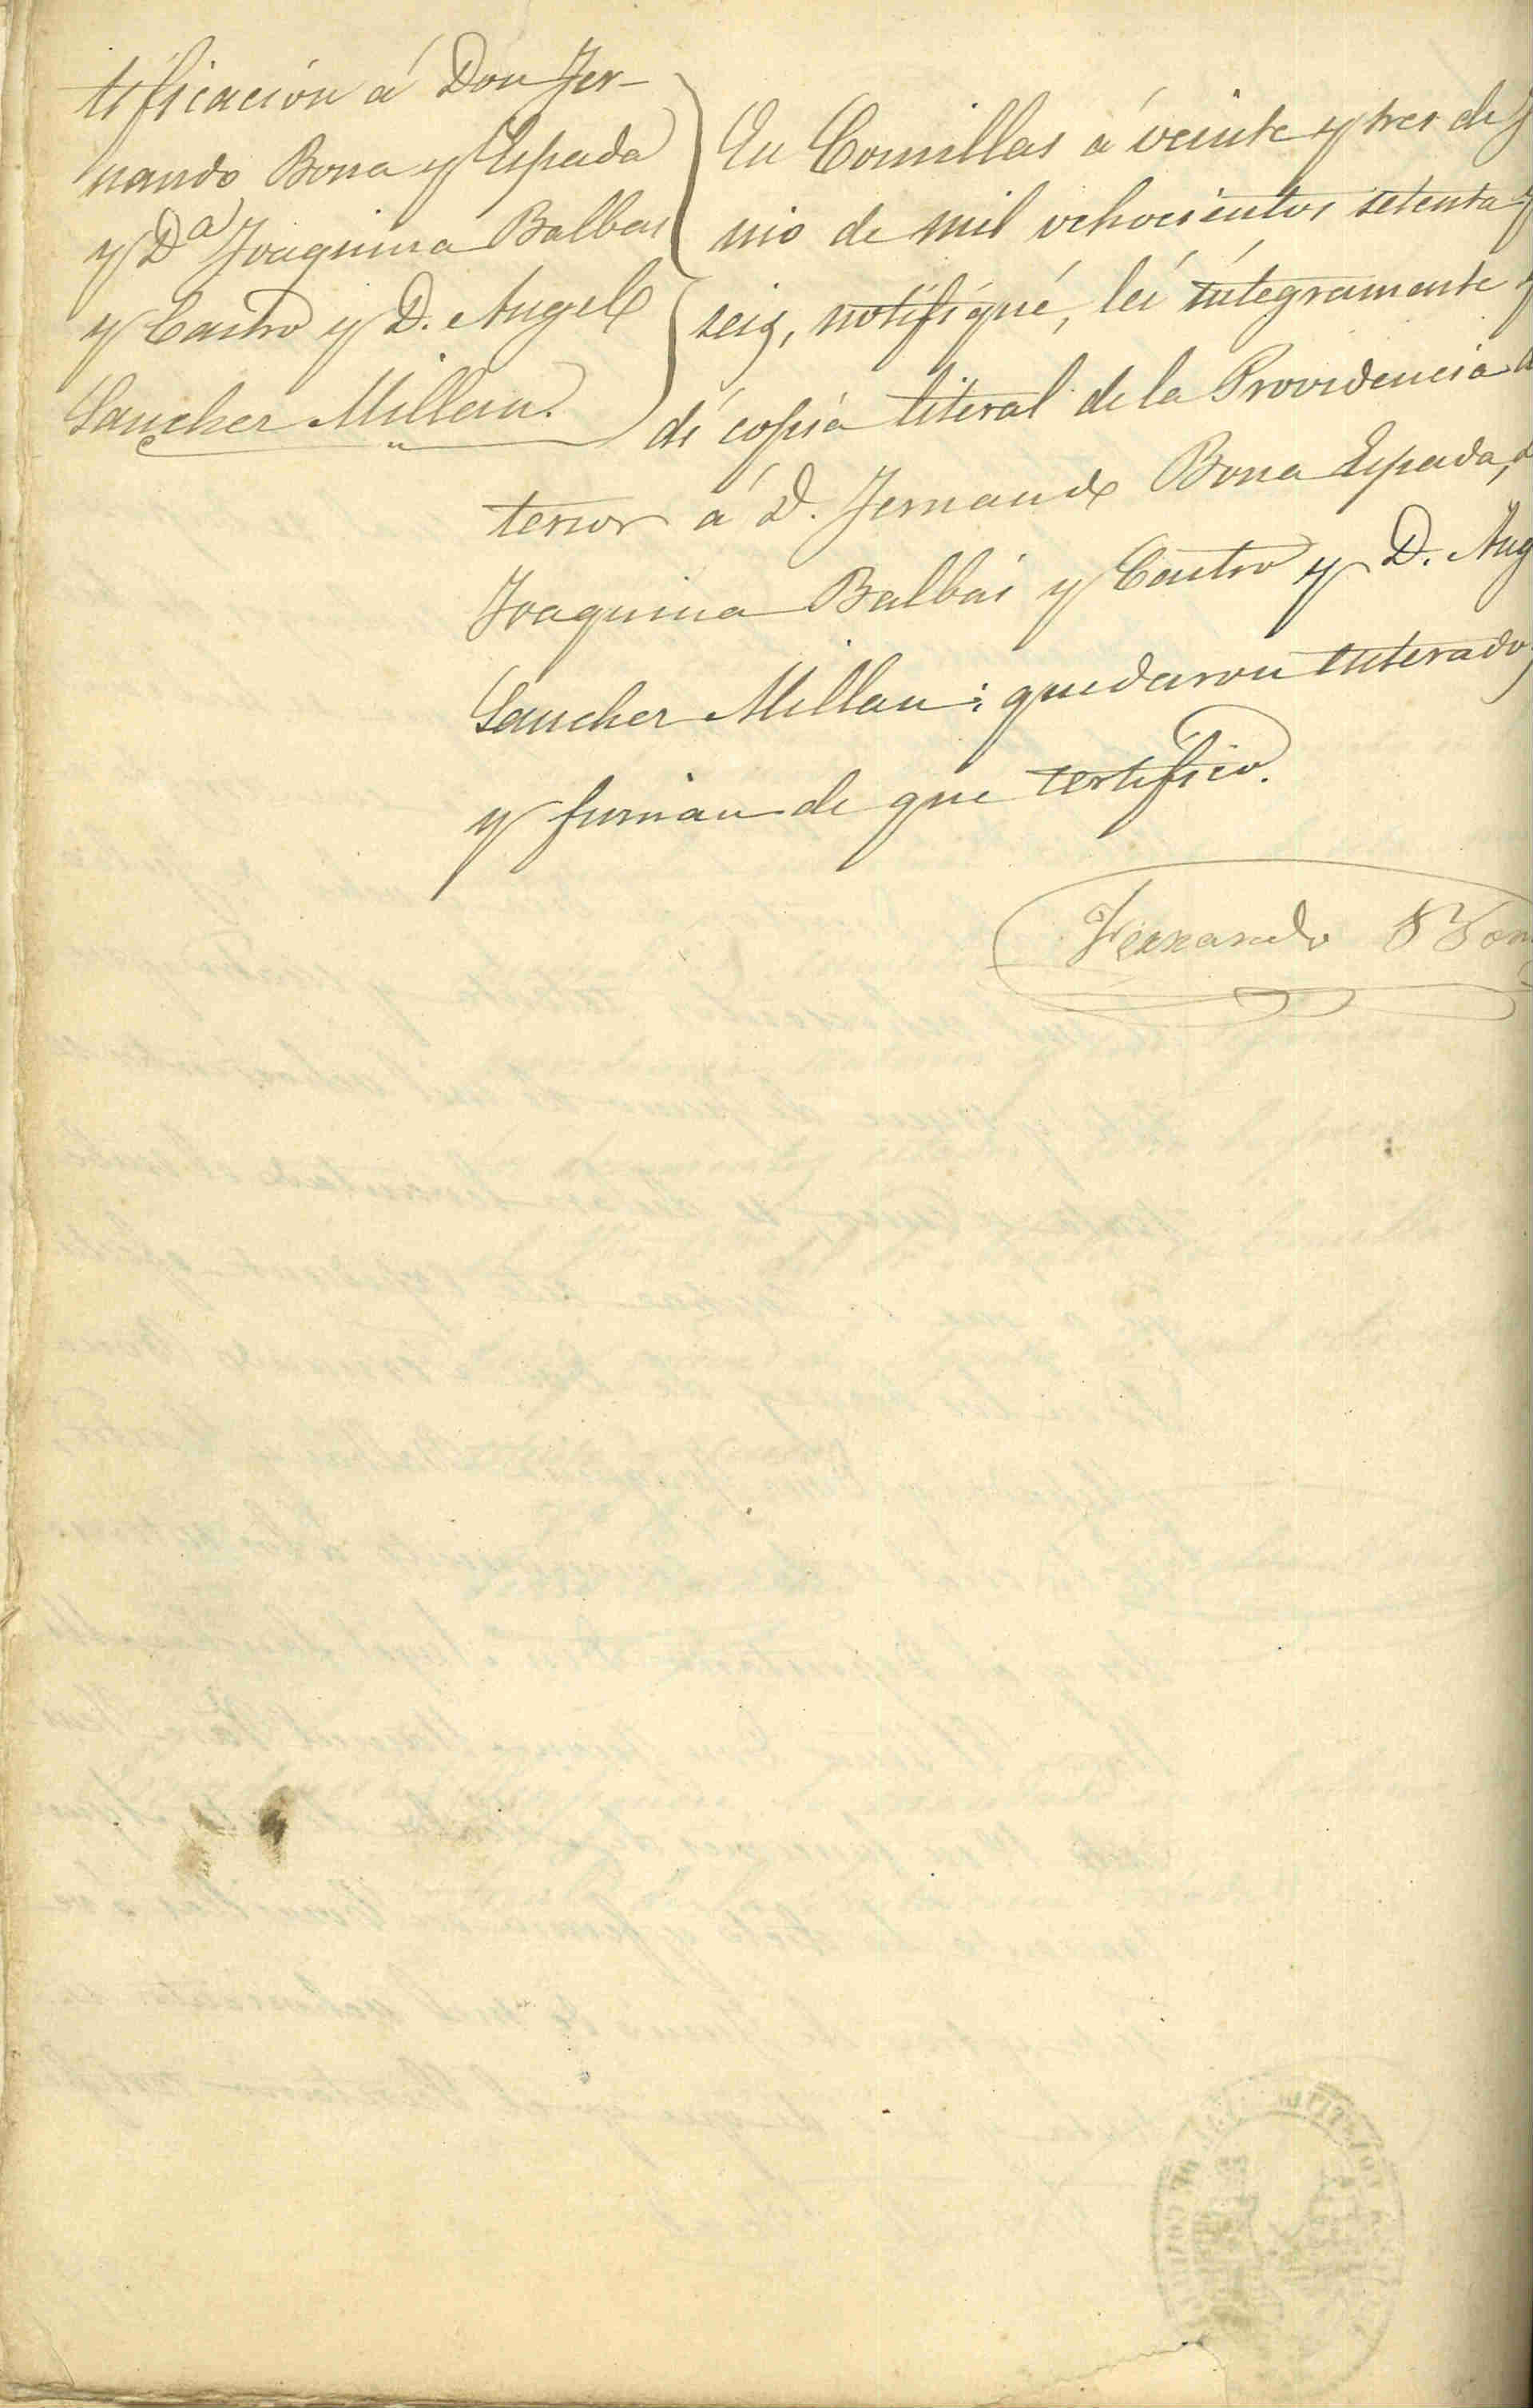 tificacion á Don Fer-
nando Bona y Espada
y Dª Joaquina Balbas
y Castro y D. Angel
Sanchez Millan.
En Comillas á veinte y tres de J
nio de mil ochocientos setenta y
seis, notifiqué, leí integramente y
dí copia literal de la Providencia
terior á D. Fernando Bona Espada,
Joaquina Balbás y Castro y D. Ang
Sanchez Millan; quedaron enterados
y firman de que certifico.
Fernando Bon